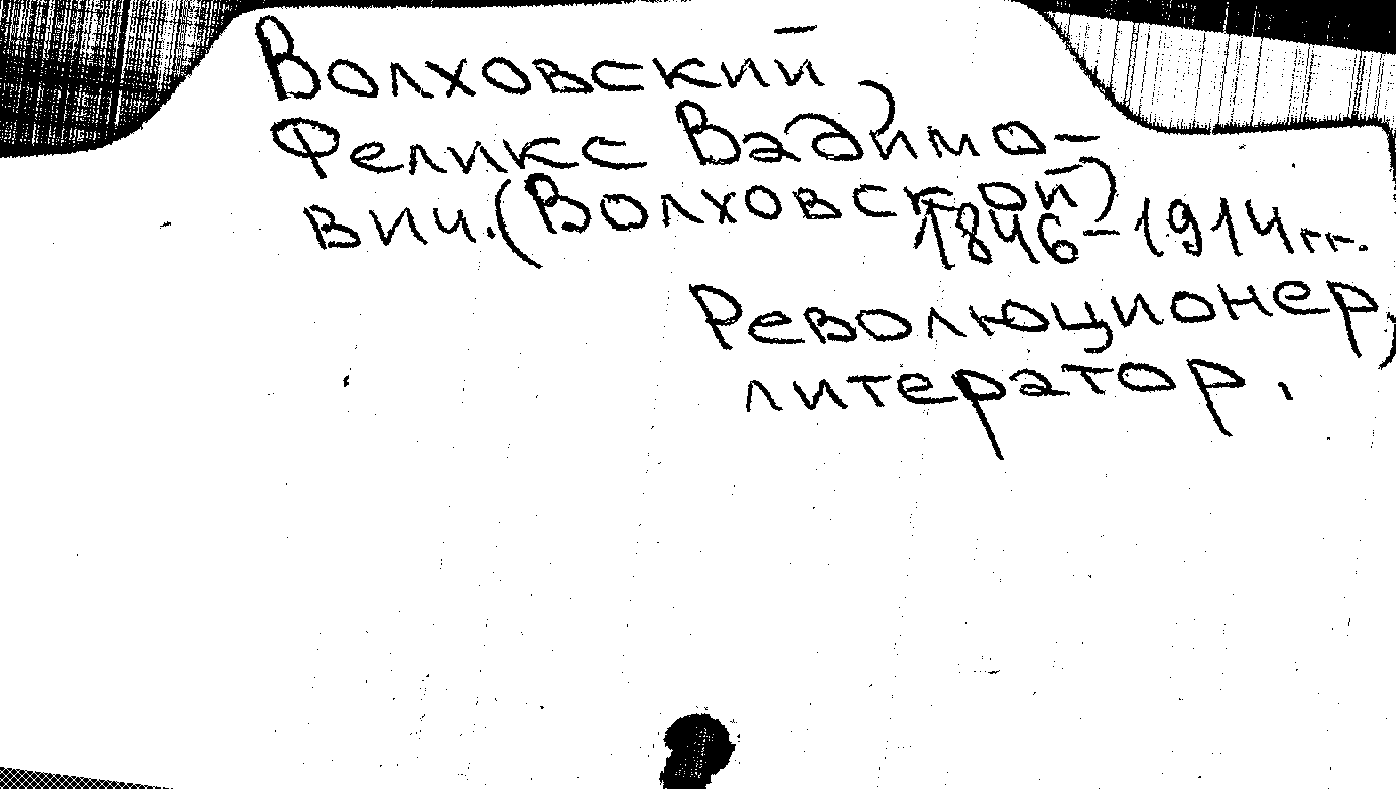 Волховский
Феликс Вадимо-
вич. (Волховской)
1846-1914 гг.
Революционер,
литератор.